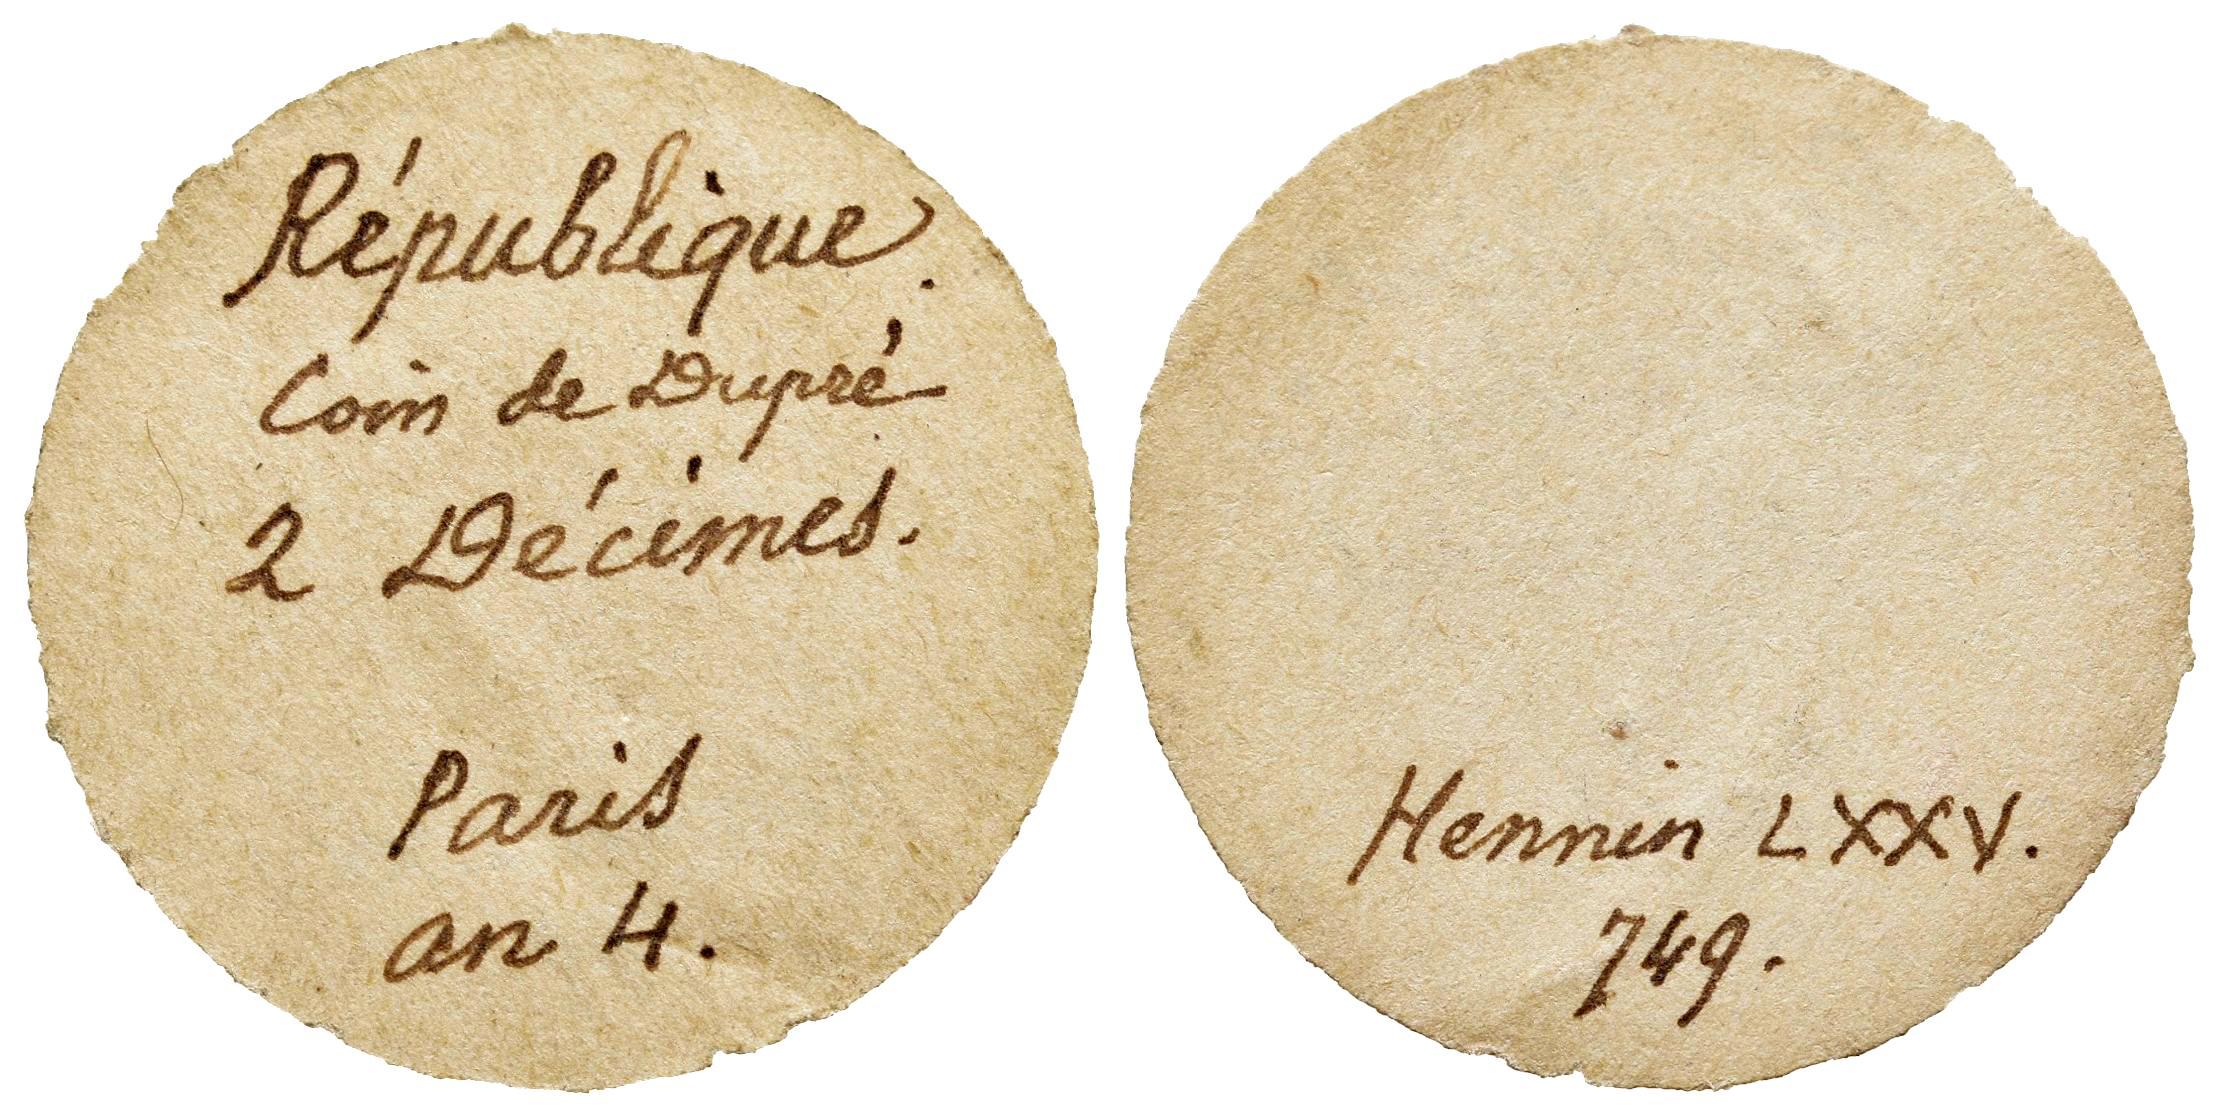 République.
Coin de Dupré
2 Décimes.
Paris
an 4.
Hennin LXXV.
749.